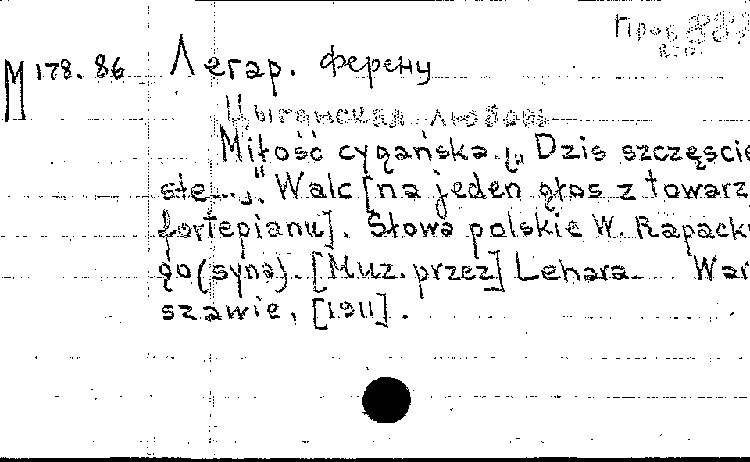 М 178.86 Легар. Ференц
Цыганская любовь
Miłość cygańska. („Dziś szczęście
ste...„". Walc [na jeden głos z towarz,
fortepianu]. Słowa polskie W. Rapacki
go (syna). [Muz. przez] Lehara. War
szawie, [1911].